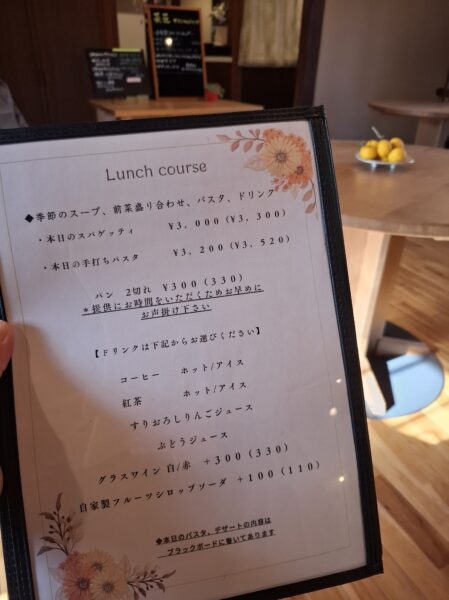 Lunch course
◆季節のスープ、前菜盛り合わせ、パスタ、ドリンク
・本日のスパゲッティ ¥3,000(¥3,300)
・本日の手打ちパスタ ¥3,200(¥3,520)
パン 2切れ ¥300(330)
*提供にお時間をいただくためお早めに
お声掛け下さい
【ドリンクは下記からお選びください】
コーヒー ホット/アイス
紅茶 ホット/アイス
すりおろしりんごジュース
ぶどうジュース
グラスワイン 白/赤 +300(330)
自家製フルーツシロップソーダ +100(110)
◆本日のパスタ、デザートの内容は
ブラックボードに書いてあります